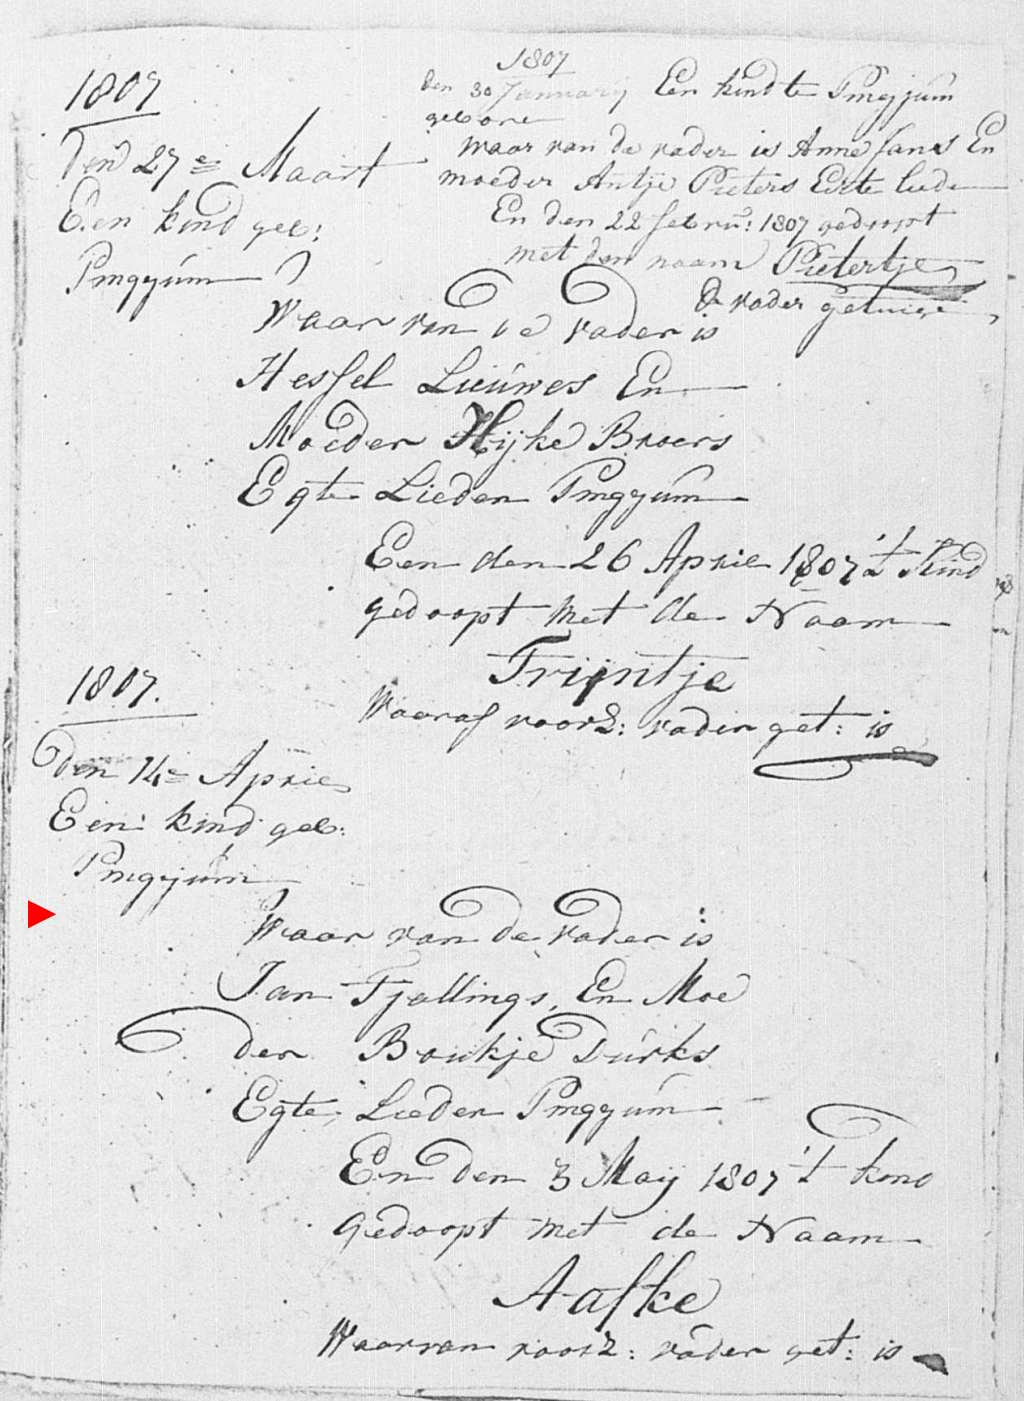 1807
den 30 January Een kind te Pingjum
gebore
waar van de vader is Anne Jans En
moeder Antje Pieters Eerte liede
En den 22 febru: 1807 gedoopt
met den naam Pietertje
de vader getuige
1807
den 27e Maart
Een kind geb:
Pingyum
Waar van de vader is
Hessel Lieuwes En
Moeder Hijke Broers
Egte Lieden Pingyum
Een den 26 Aprie 1807 't Kind
gedoopt met de Naam
Trijntje
Waaraf voorz: vader get: is
1807.
den 14e Aprie
Een kind geb:
Pingyum
Waar van de vader is
Jan Tjallings, En Moe
der Boukje Durks
Egte Lieden Pingyum
En den 3 Maij 1807 't kind
gedoopt met de Naam
Aafke
Waarvan voorz: vader get: is